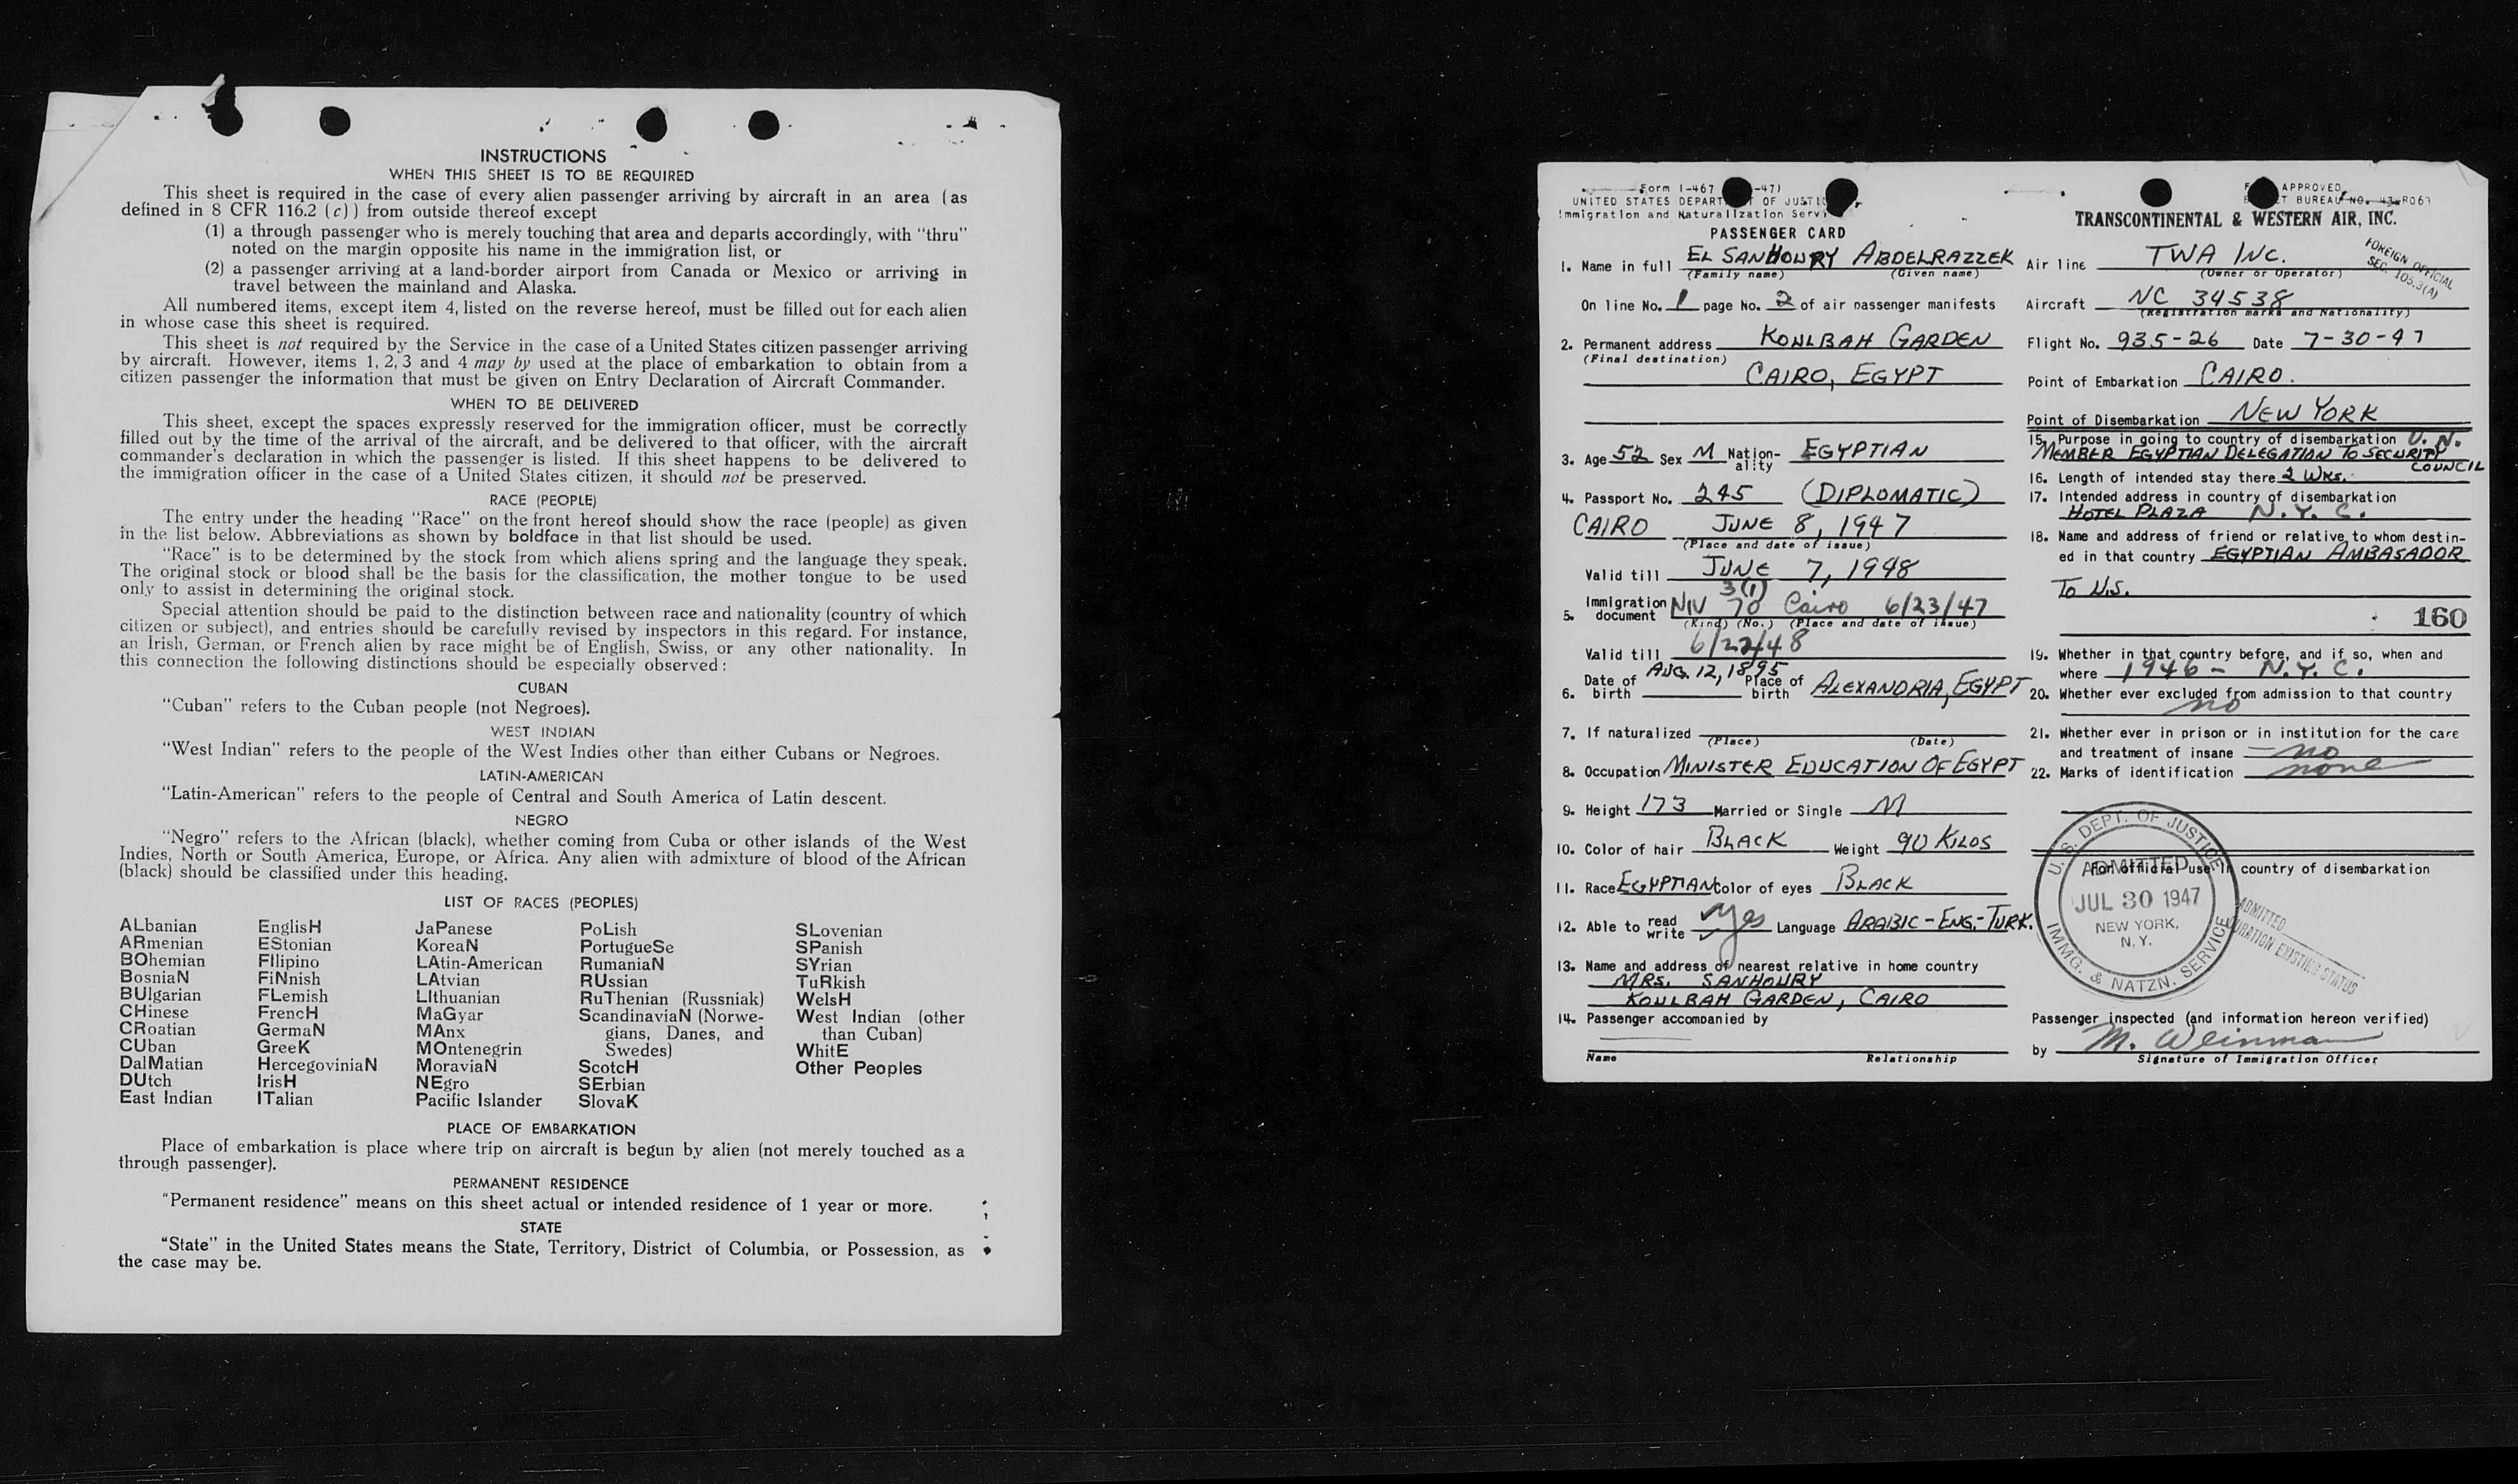 INSTRUCTIONS
WHEN THIS SHEET IS TO BE REQUIRED
This sheet is required in the case of every alien passenger arriving by aircraft in an area (as
defined in 8 CFR 116.2 (c)) from outside thereof except
(1) a through passenger who is merely touching that area and departs accordingly, with "thru"
noted on the margin opposite his name in the immigration list, or
(2) a passenger arriving at a land-border airport from Canada or Mexico or arriving in
travel between the mainland and Alaska.
All numbered items, except item 4, listed on the reverse hereof, must be filled out for each alien
in whose case this sheet is required.
This sheet is not required by the Service in the case of a United States citizen passenger arriving
by aircraft. However, items 1, 2, 3 and 4 may by used at the place of embarkation to obtain from a
citizen passenger the information that must be given on Entry Declaration of Aircraft Commander.
WHEN TO BE DELIVERED
This sheet, except the spaces expressly reserved for the immigration officer, must be correctly
filled out by the time of the arrival of the aircraft, and be delivered to that officer, with the aircraft
commander's declaration in which the passenger is listed. If this sheet happens to be delivered to
the immigration officer in the case of a United States citizen, it should not be preserved.
RACE (PEOPLE)
The entry under the heading "Race" on the front hereof should show the race (people) as given
in the list below. Abbreviations as shown by boldface in that list should be used.
"Race" is to be determined by the stock from which aliens spring and the language they speak.
The original stock or blood shall be the basis for the classification, the mother tongue to be used
only to assist in determining the original stock.
Special attention should be paid to the distinction between race and nationality (country of which
citizen or subject), and entries should be carefully revised by inspectors in this regard. For instance,
an Irish, German, or French alien by race might be of English, Swiss, or any other nationality. In
this connection the following distinctions should be especially observed:
CUBAN
"Cuban" refers to the Cuban people (not Negroes).
WEST INDIAN
"West Indian" refers to the people of the West Indies other than either Cubans or Negroes.
LATIN-AMERICAN
"Latin-American" refers to the people of Central and South America of Latin descent.
NEGRO
"Negro" refers to the African (black), whether coming from Cuba or other islands of the West
Indies, North or South America, Europe, or Africa. Any alien with admixture of blood of the African
(black) should be classified under this heading.
LIST OF RACES (PEOPLES)
ALbanian
ARmenian
BOhemian
BosniaN
BUlgarian
CHinese
CRoatian
CUban
DalMatian
DUtch
East Indian
EnglisH
EStonian
FIlipino
FiNnish
FLemish
FrencH
GermaN
GreeK
HercegoviniaN
IrisH
ITalian
JaPanese
KoreaN
LAtin-American
LAtvian
LIthuanian
MaGyar
MAnx
MOntenegrin
MoraviaN
NEgro
Pacific Islander
PoLish
PortugueSe
RumaniaN
RUssian
RuThenian (Russniak)
ScandinaviaN (Norwe-
gians, Danes, and
Swedes)
ScotcH
SErbian
SlovaK
SLovenian
SPanish
SYrian
TuRkish
WelsH
West Indian (other
than Cuban)
WhitE
Other Peoples
PLACE OF EMBARKATION
Place of embarkation is place where trip on aircraft is begun by alien (not merely touched as a
through passenger).
PERMANENT RESIDENCE
"Permanent residence" means on this sheet actual or intended residence of 1 year or more.
STATE
"State" in the United States means the State, Territory, District of Columbia, or Possession, as
the case may be.
Form I-467 -47)
UNITED STATES DEPART OF JUSTIC
Immigration and Naturalization Servi
PASSENGER CARD
1. Name in full EL SANHOURY ABDELRAZZEK
(Family name) (Given name)
On line No. 1 page No. 2 of air passenger manifests
2. Permanent address KOULBAH GARDEN
(Final destination)
CAIRO, EGYPT
3. Age 52 Sex M Nation-
ality EGYPTIAN
4. Passport No. 245 (DIPLOMATIC)
CAIRO JUNE 8, 1947
(Place and date of issue)
Valid till JUNE 7, 1948
3(1)
5. Immigration
document NIV 70 Cairo 6/23/47
(Kind) (No.) (Place and date of issue)
Valid till 6/22/48
6. Date of
birth AUG. 12, 1895 Place of
birth ALEXANDRIA, EGYPT
7. If naturalized
(Place) (Date)
8. Occupation MINISTER EDUCATION OF EGYPT
9. Height 173 Married or Single M
10. Color of hair BLACK Weight 90 KILOS
11. Race EGYPTIAN Color of eyes BLACK
12. Able to read
write Yes Language ARABIC-ENG-TURK.
13. Name and address of nearest relative in home country
MRS. SANHOURY
KOULBAH GARDEN, CAIRO
14. Passenger accompanied by
Name Relationship
APPROVED
T BUREAU NO. 43-R067
TRANSCONTINENTAL & WESTERN AIR, INC.
FOREIGN OFFICIAL
SEC. 105.3(A)
Air line TWA INC.
(Owner or Operator)
Aircraft NC 34538
(Registration marks and Nationality)
Flight No. 935-26 Date 7-30-47
Point of Embarkation CAIRO.
Point of Disembarkation NEW YORK
15. Purpose in going to country of disembarkation U.N.
MEMBER EGYPTIAN DELEGATION TO SECURITY
COUNCIL
16. Length of intended stay there 2 WKS.
17. Intended address in country of disembarkation
HOTEL PLAZA N.Y.C.
18. Name and address of friend or relative to whom destin-
ed in that country EGYPTIAN AMBASADOR
TO U.S.
160
19. Whether in that country before, and if so, when and
where 1946 - N.Y.C.
20. Whether ever excluded from admission to that country
no
21. Whether ever in prison or in institution for the care
and treatment of insane - no
22. Marks of identification none
For official use in country of disembarkation
U. S. DEPT. OF JUSTICE
ADMITTED
JUL 30 1947
NEW YORK,
N. Y.
IMMG. & NATZN. SERVICE
ADMITTED
DURATION EXISTING STATUS
Passenger inspected (and information hereon verified)
by M. Weinman
Signature of Immigration Officer